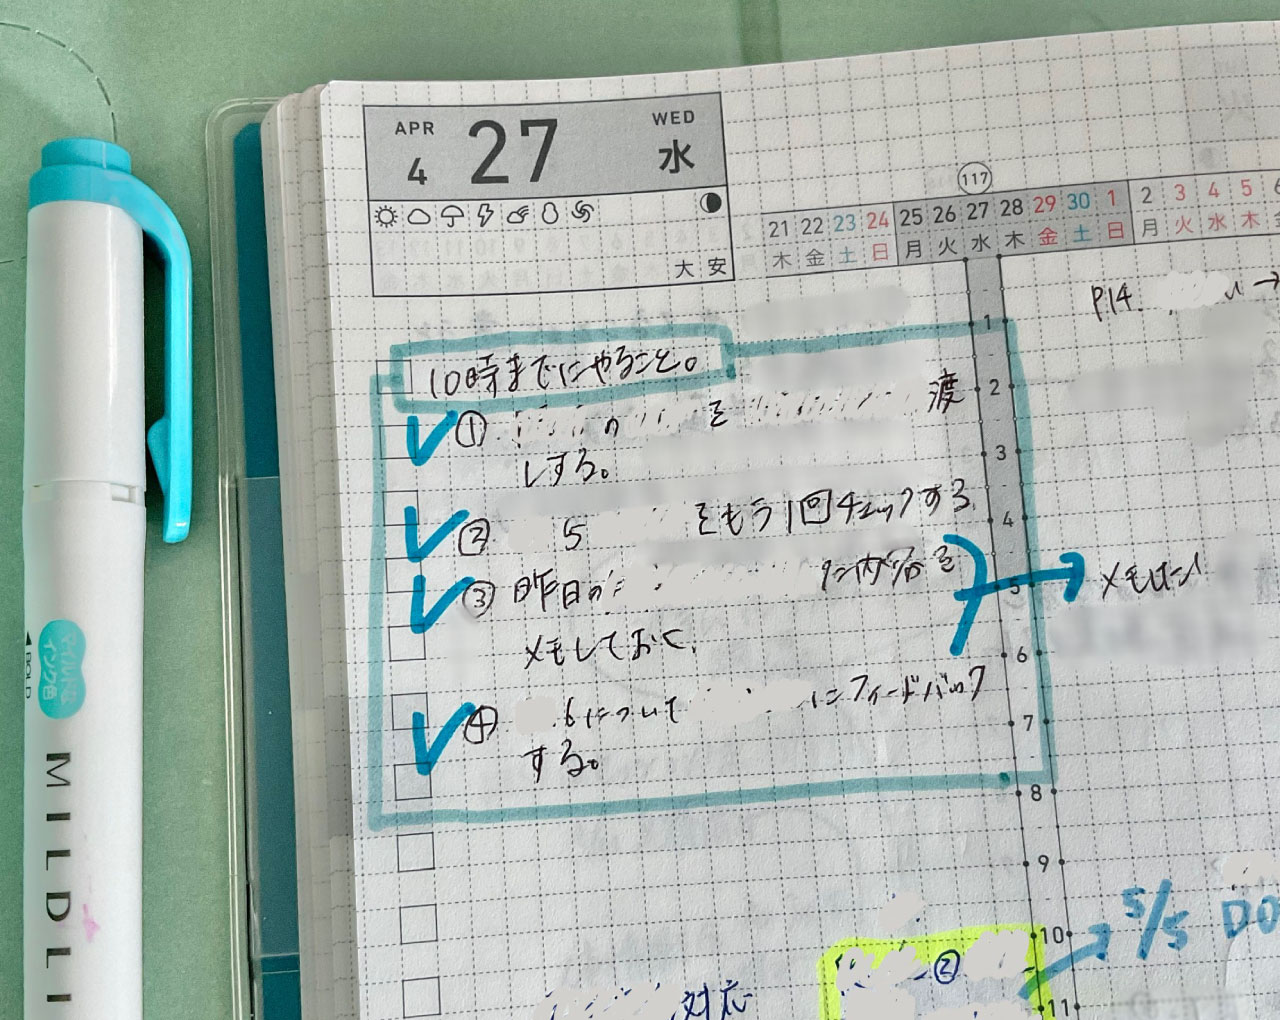 APR
4
27
WED
水
大安
117
21 22 23 24 25 26 27 28 29 30 1 2 3 4 5 6
木 金 土 日 月 火 水 木 金 土 日 月 火 水 木
P14.
10時までにやること。
① の を 渡
しする。
② 5 をもう1回チェックする
③ 昨日の 内容を
メモしておく。
メモした
④ 6について にフィードバック
する。
1
2
3
4
5
6
7
8
9
10
11
5/5 DO
②
対応
マイルドなインク色
BOLD
MILDLI